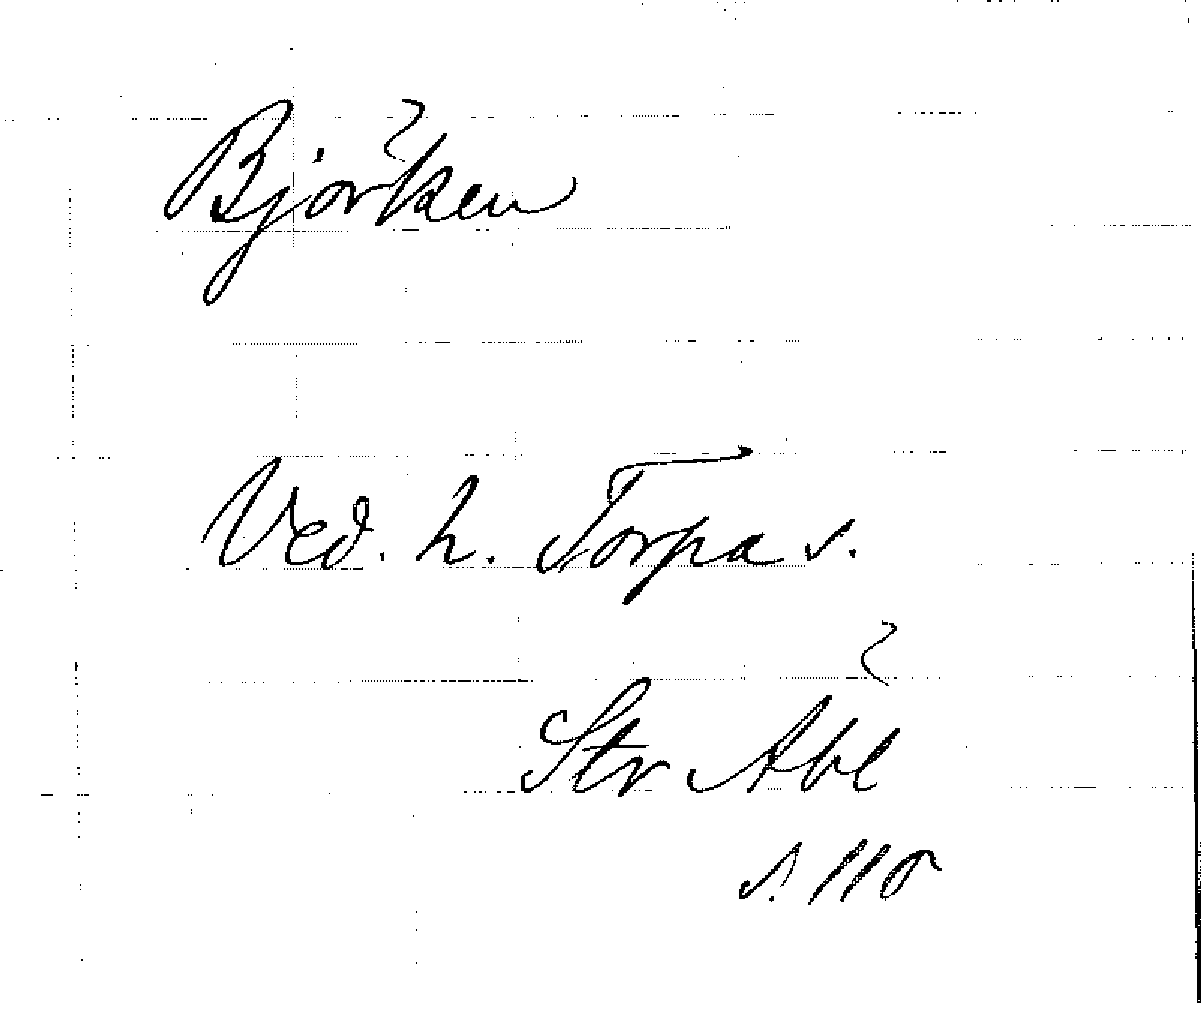 Björken
Ved. h. Torpa s.
Str Åbl
s. 110